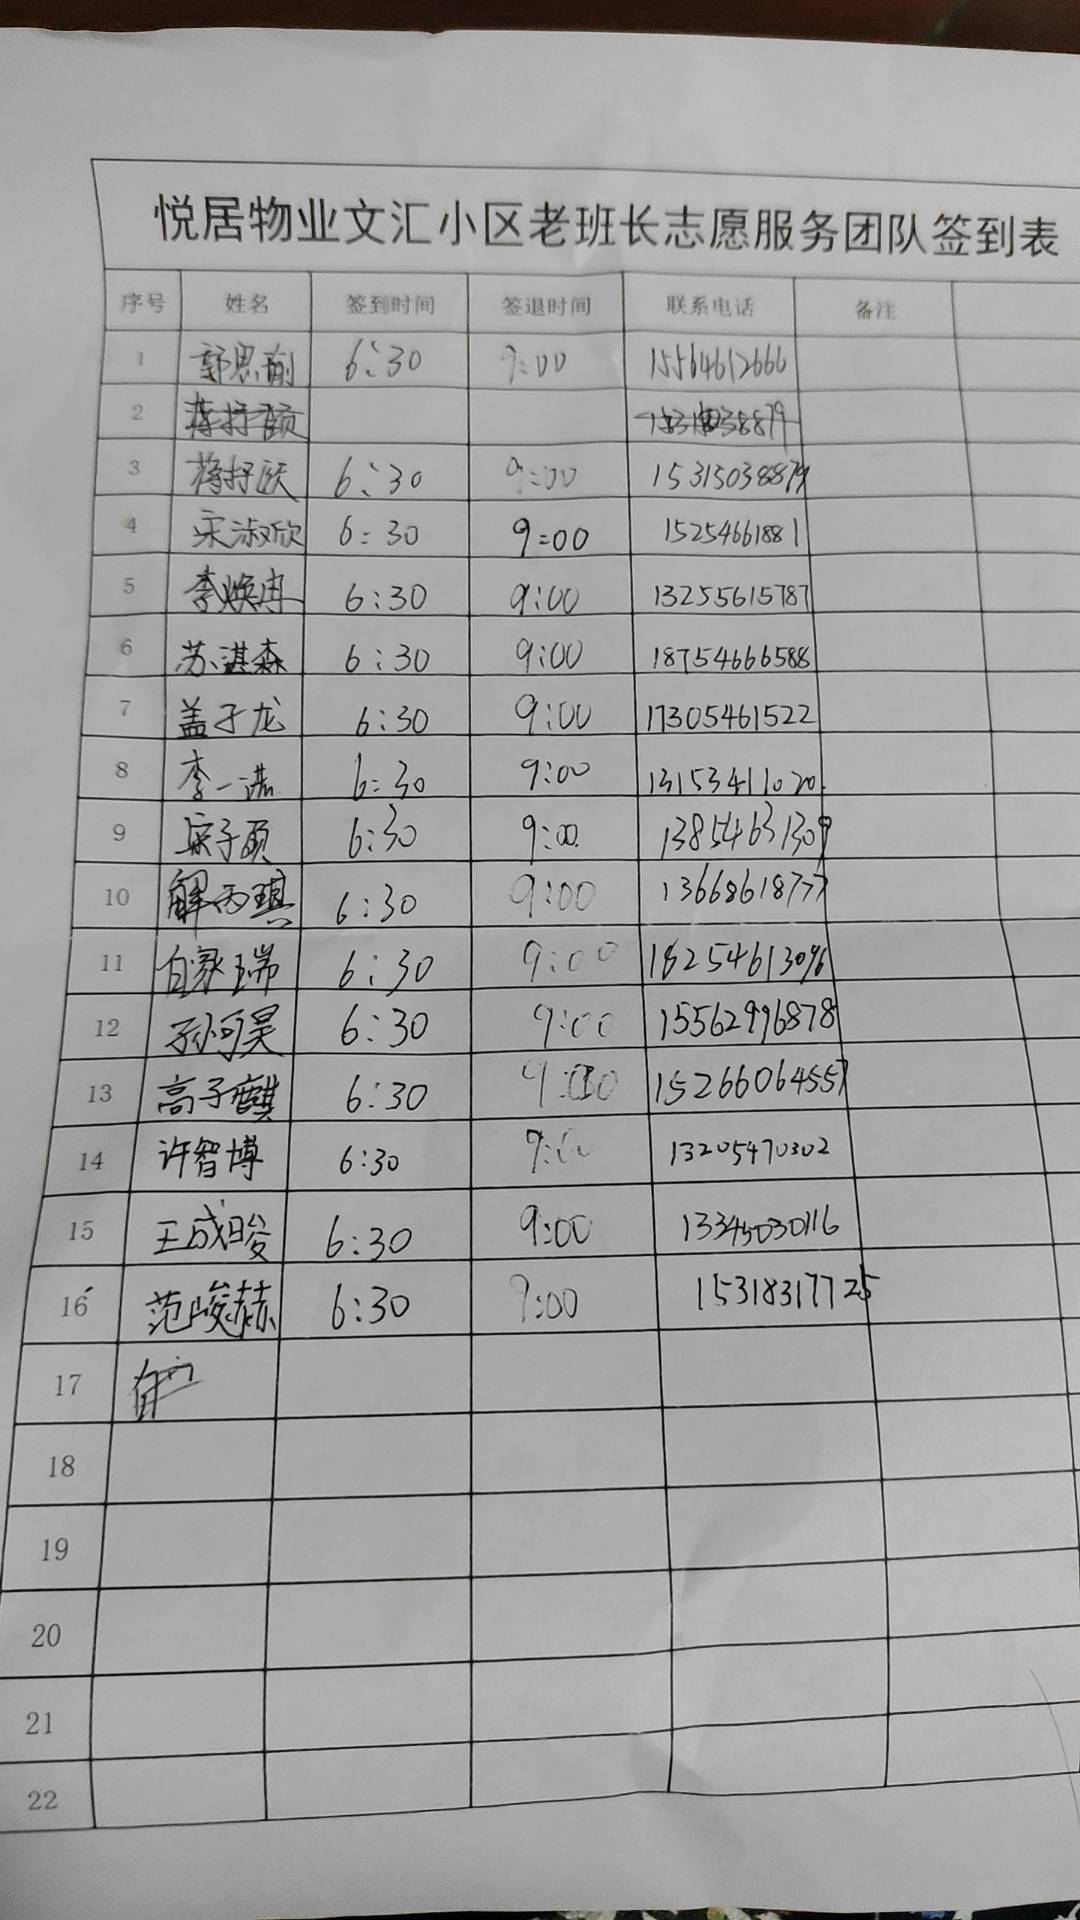 悦居物业文汇小区老班长志愿服务团队签到表
序号 姓名 签到时间 签退时间 联系电话 备注
1 郭思瑜 6:30 9:00 15564612666
2
3 蒋抒跃 6:30 9:00 15315038879
4 宋淑欣 6:30 9:00 15254661881
5 李焕冉 6:30 9:00 13255615787
6 苏湛森 6:30 9:00 18754666588
7 盖子龙 6:30 9:00 17305461522
8 李一 6:30 9:00 13153411020
9 梁子硕 6:30 9:00 13854631309
10 解丙琪 6:30 9:00 13668618777
11 白家瑞 6:30 9:00 18254613096
12 孙可昊 6:30 9:00 15562996878
13 高子麒 6:30 9:00 15266064557
14 许智博 6:30 9:00 13205470302
15 王成晙 6:30 9:00 13345030116
16 范峻赫 6:30 9:00 15318317725
17
18
19
20
21
22